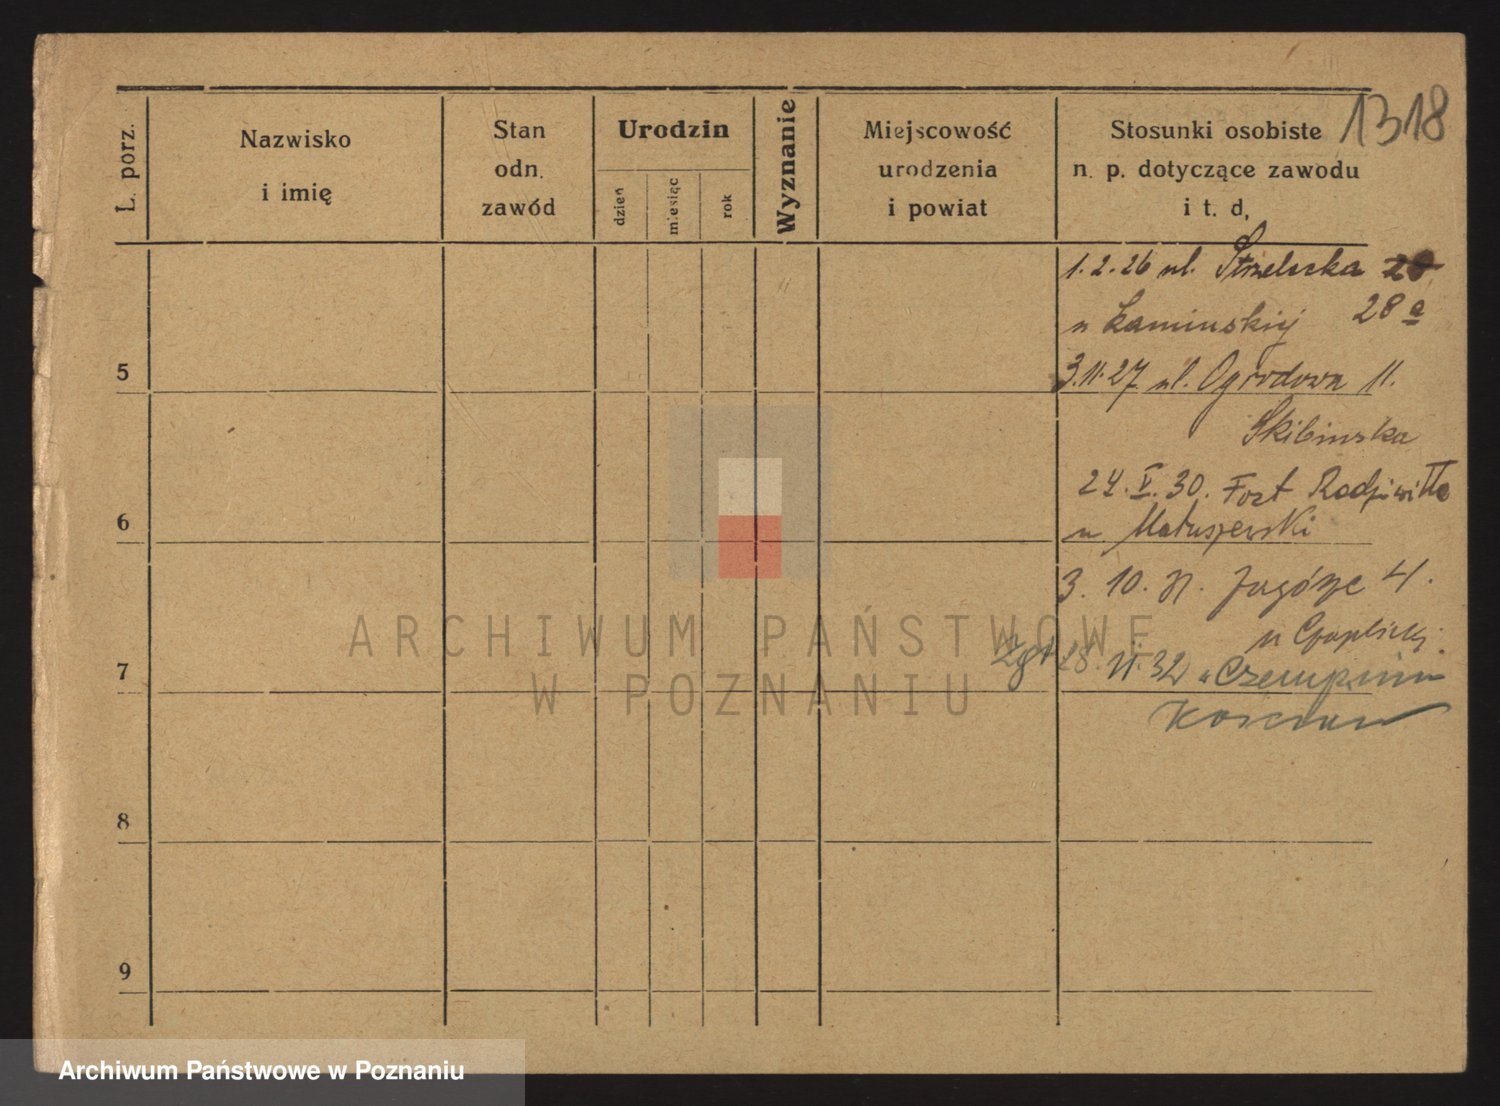 1318
L. porz.
Nazwisko
i imię
Stan
odn.
zawód
Urodzin
dzień
miesiąc
rok
Wyznanie
Miejscowość
urodzenia
i powiat
Stosunki osobiste
n. p. dotyczące zawodu
i t. d.
1.2.26 ul. Strzelecka 28
u Kaminskiej 28 a
5
3.11.27 ul. Ogrodowa 11.
Skibinska
24. V. 30. Fort Radziwiłła
6
u Matuszewski
3. 10. 31. 4.
u Czaplickiej
ARCHIWUM PAŃSTWOWE
7
18. VI. 32 Czempiniu
W POZNANIU
Kościan
8
9
Archiwum Państwowe w Poznaniu